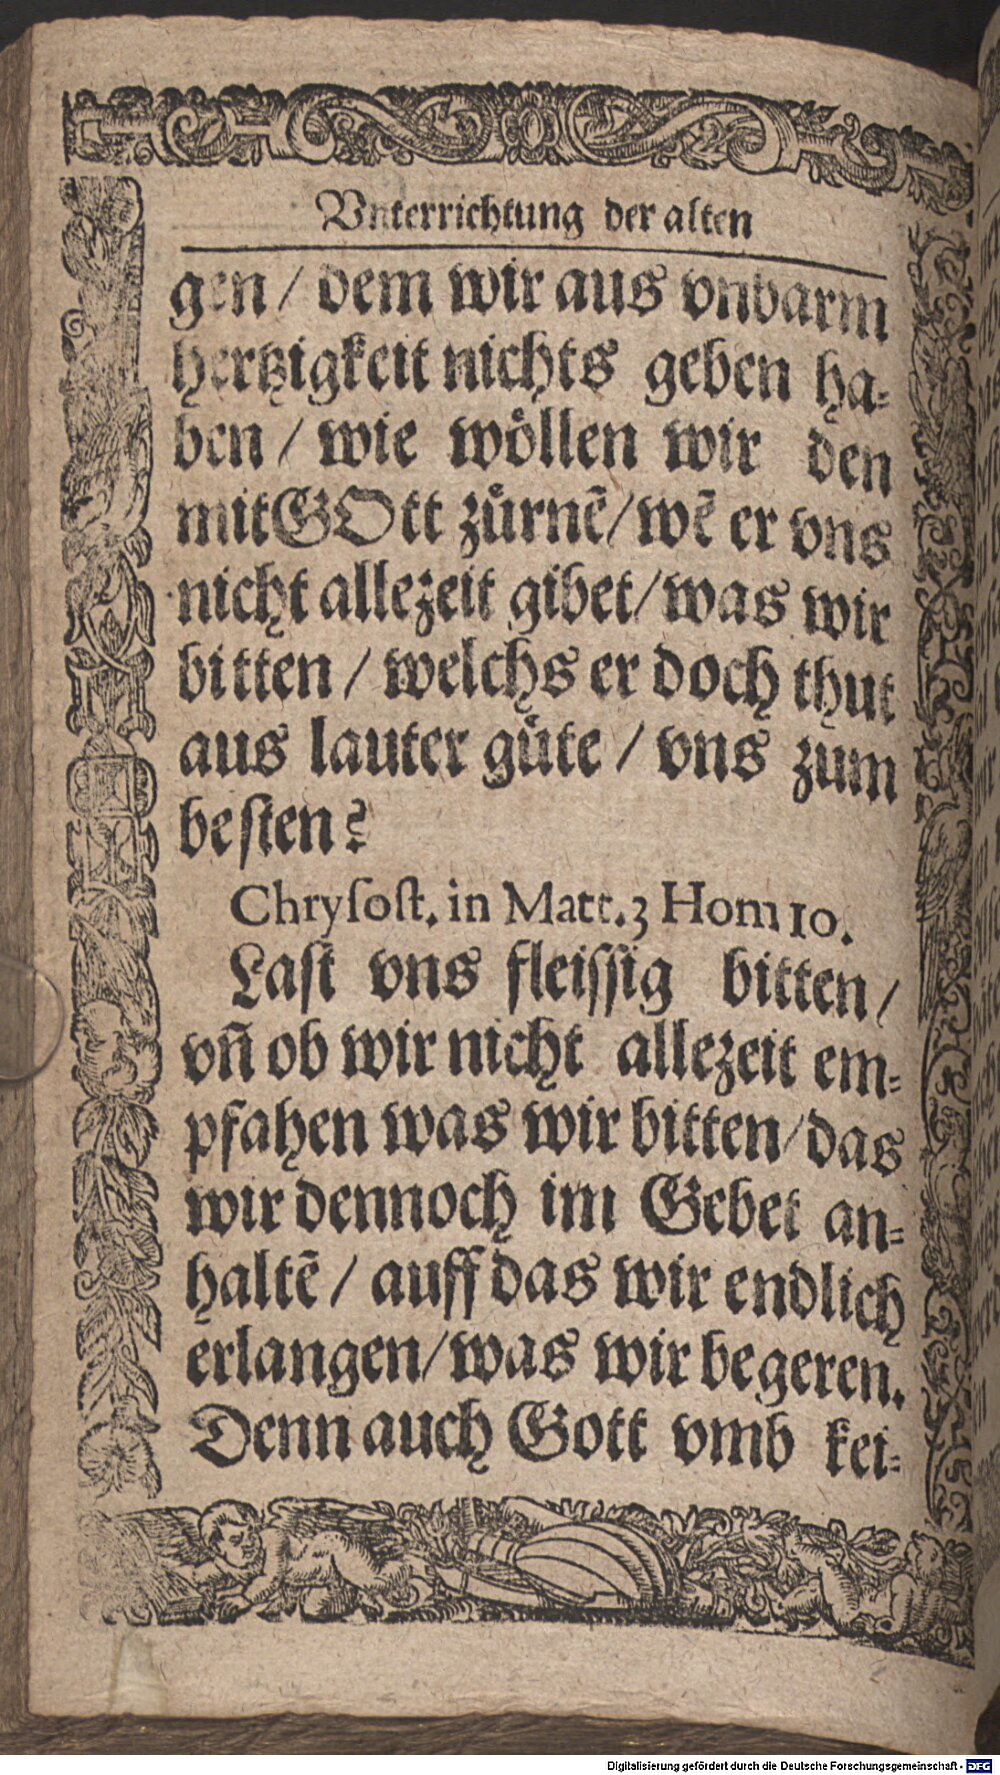 Vnterrichtung der alten
gen / dem wir aus vnbarm
hertzigkeit nichts geben ha⸗
ben / wie wöllen wir den
mit GOtt zürnẽ / wẽ er vns
nicht allezeit gibet / was wir
bitten / welchs er doch thut
aus lauter güte / vns zum
besten?
Chrysost. in Matt. 3 Hom 10.
Last vns fleissig bitten /
vñ ob wir nicht allezeit em⸗
pfahen was wir bitten / das
wir dennoch im Gebet an⸗
haltẽ / auff das wir endlich
erlangen / was wir begeren.
Denn auch Gott vmb kei⸗
Digitalisierung gefördert durch die Deutsche Forschungsgemeinschaft - DFG